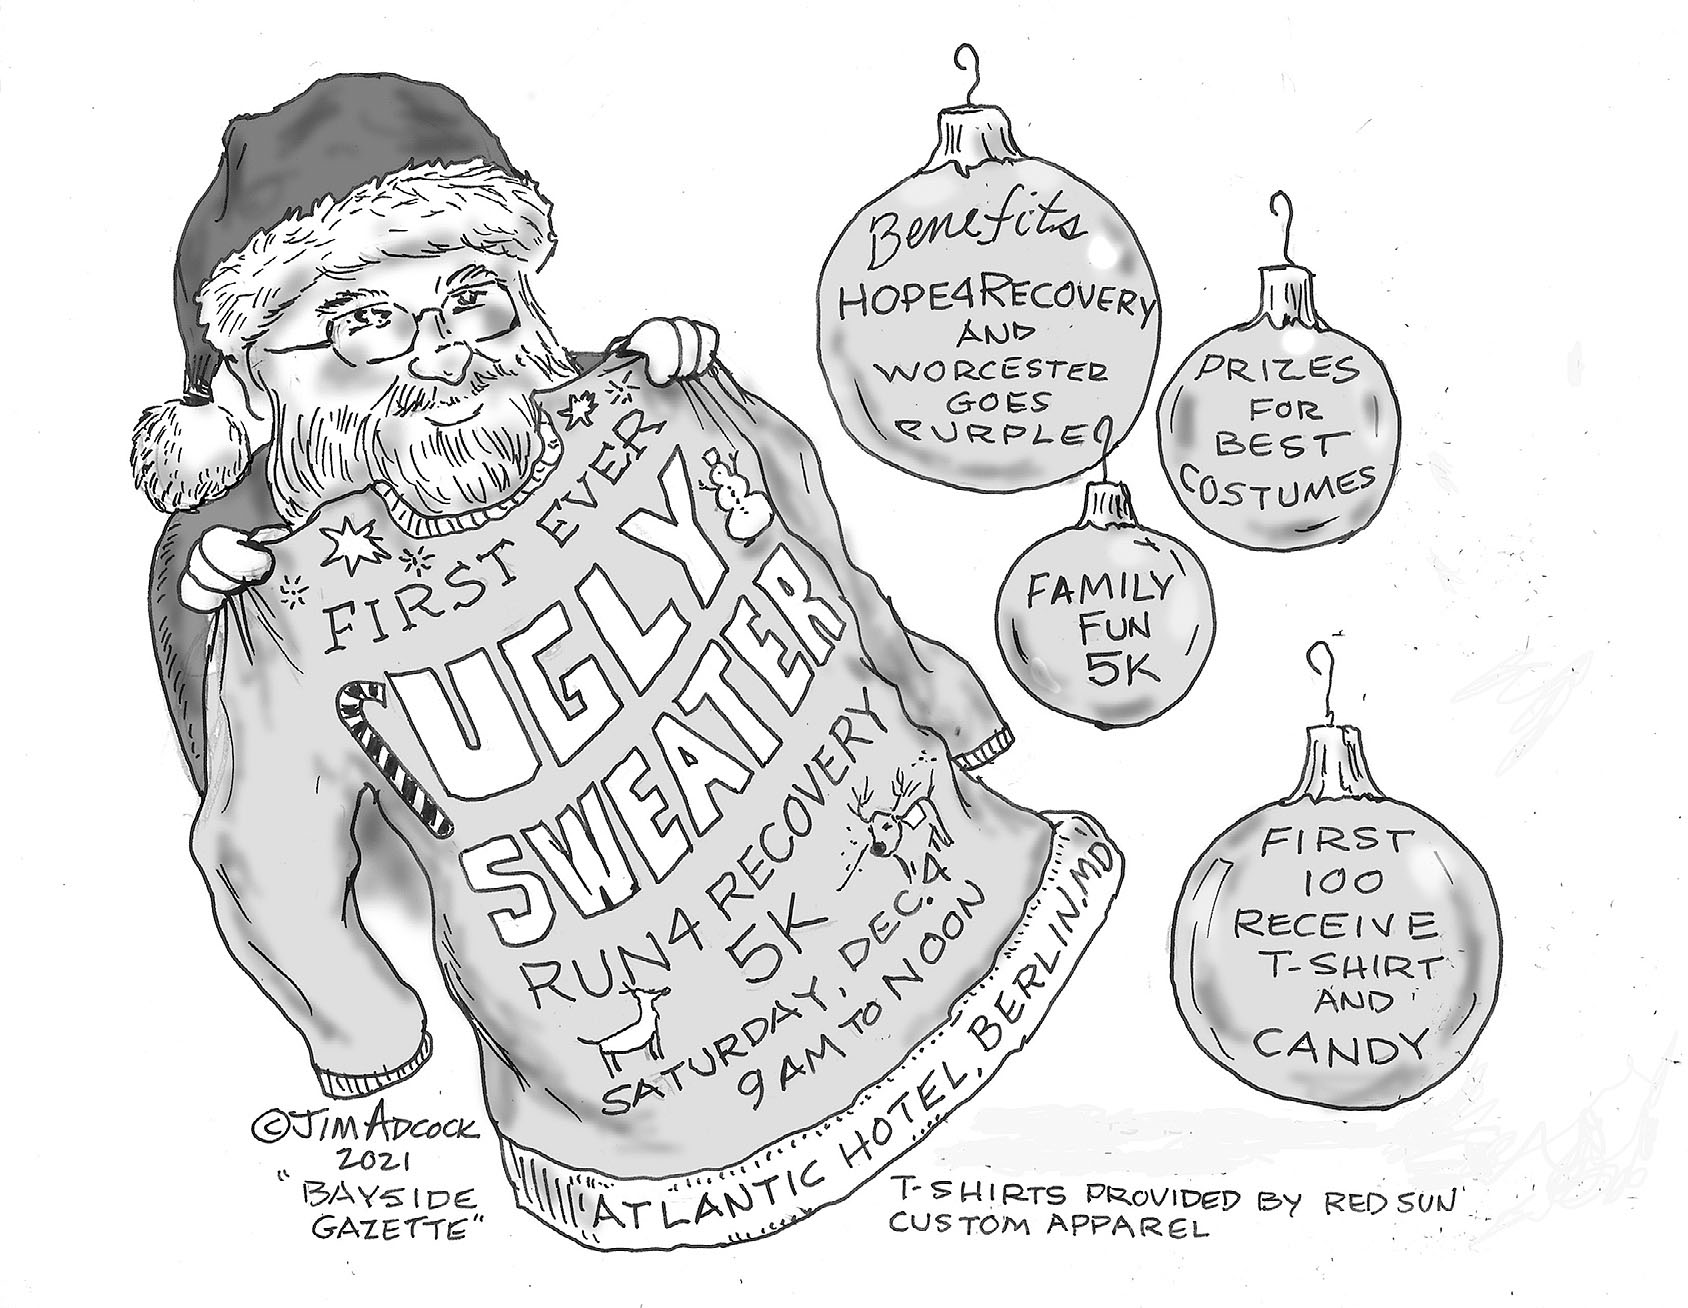 FIRST EVER
UGLY
SWEATER
RUN4 RECOVERY
5K
SATURDAY, DEC. 4
9 AM TO NOON
ATLANTIC HOTEL, BERLIN, MD
Benefits
HOPE4RECOVERY
AND
WORCESTER
GOES
PURPLE
PRIZES
FOR
BEST
COSTUMES
FAMILY
FUN
5K
FIRST
100
RECEIVE
T-SHIRT
AND
CANDY
© JIM ADCOCK
2021
"BAYSIDE
GAZETTE"
T-SHIRTS PROVIDED BY RED SUN
CUSTOM APPAREL